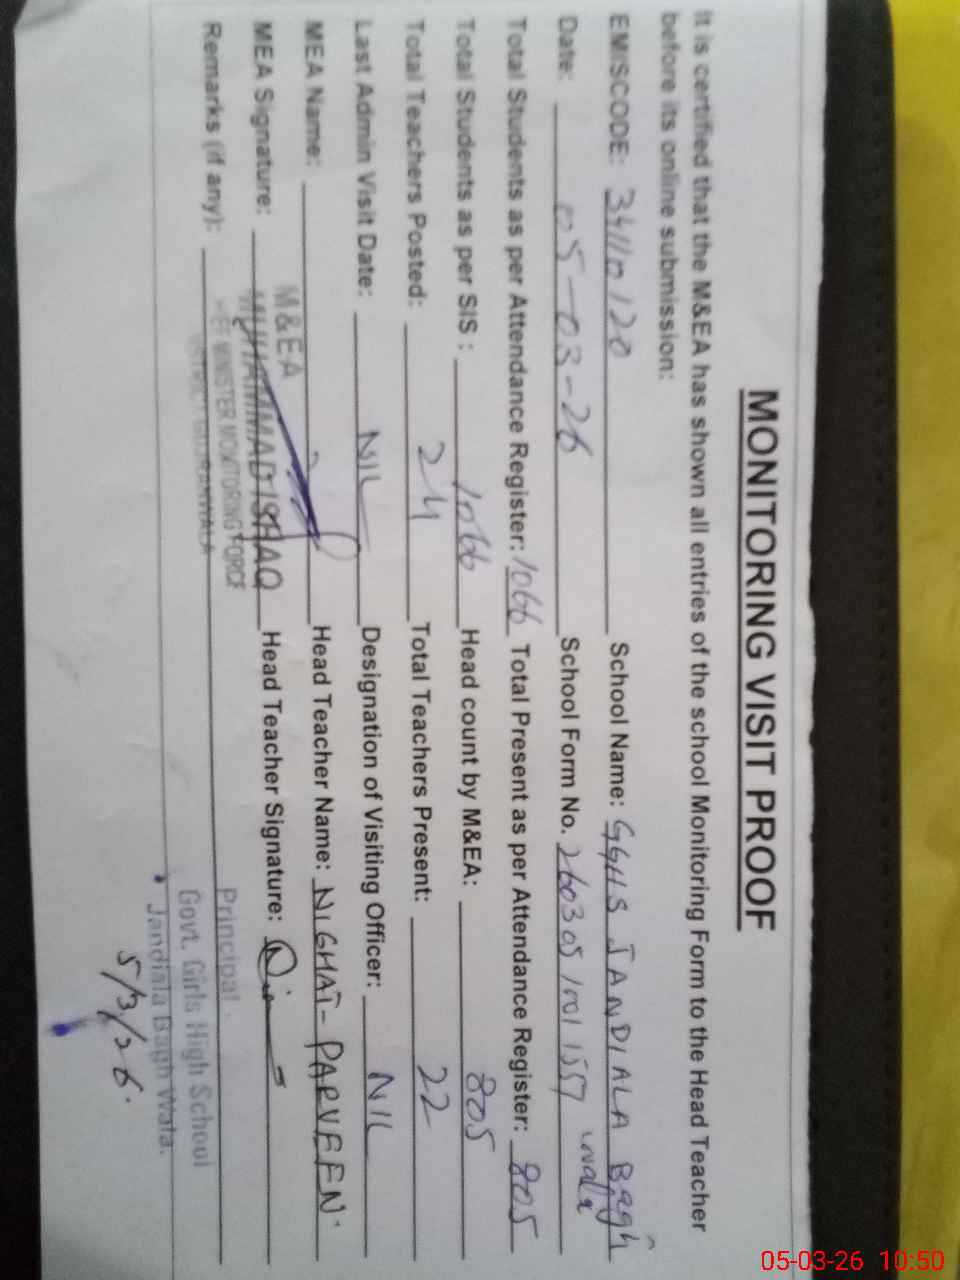 MONITORING VISIT PROOF
It is certified that the M&EA has shown all entries of the school Monitoring Form to the Head Teacher
before its online submission:
EMISCODE: 34110120 School Name: GGHS JANDIALA Bagh wala
Date: 05-03-26 School Form No. 2603051001557
Total Students as per Attendance Register: 1066 Total Present as per Attendance Register: 805
Total Students as per SIS : 1066 Head count by M&EA: 805
Total Teachers Posted: 24 Total Teachers Present: 22
Last Admin Visit Date: NIL Designation of Visiting Officer: NIL
MEA Name: Head Teacher Name: NIGHAT PARVEEN.
MEA Signature: Head Teacher Signature:
Remarks (if any):
M&EA
MUHAMMAD ISHAQ
MINISTER MONITORING FORCE
DISTRICT GUJRANWALA
Principal
Govt. Girls High School
Jandiala Bagh Wala.
5/3/26.
05-03-26 10:50